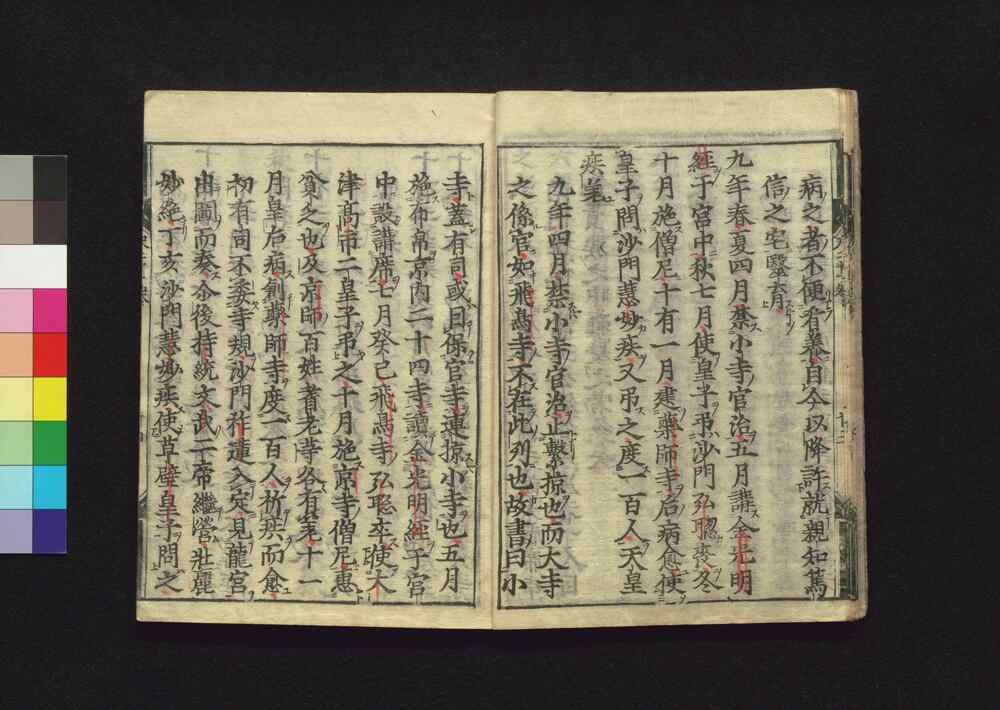 病之者不便看養自今以降許就親知篤
信之宅醫育
九年春夏四月禁小寺官治五月講金光明
經于宮中秋七月使皇子弔沙門弘聰喪冬
十月施僧尼十有一月建藥師寺后病愈使
皇子問沙門慧妙疾又弔之度一百人天皇
疾差
九年四月禁小寺官治止繫掠也而大寺
之係官如飛鳥寺不在此列也故書曰小
寺蓋有司或曰保官寺連掠小寺也五月
施布帛京內二十四寺讀金光明經于宮
中設講席七月癸己飛鳥寺弘聡卒使大
津高市二皇子弔之十月施京寺僧尼惠
貧乏也及京師百姓耆老等各有差十一
月皇后病創藥師寺度一百人祈疾而愈
初有司不委寺規沙門祚蓮入定見龍宮
由圖而奏今後持統文武二帝繼營壯麗
妙絕丁亥沙門慧妙疾使草壁皇子問之